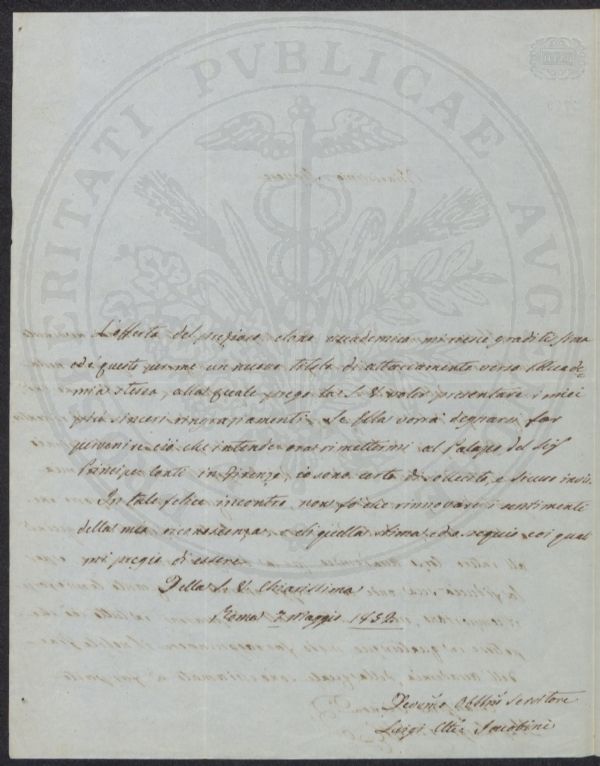 PROSPERITATI PVBLICAE AVGENDAE
L'offerta del prezioso dono accademico mi riesce graditissima
ed è questo per me un nuovo titolo di attaccamento verso l'Accade-
mia stessa, alla quale prego la S. V. voler presentare i miei
più sinceri ringraziamenti. Se Ella vorrà degnarsi far
pervenire ciò che intende ora rimettermi al Palazzo del Sigr
Principe Conti in Firenze, io sono certo di sollecito, e sicuro invio.
In tale felice incontro non fo che rinnovare i sentimenti
della mia riconoscenza, e di quella stima ed ossequio coi quali
mi pregio di essere
Della S. V. Chiarissima
Roma 7 Maggio 1852
Devmo Obblmo Servitore
Luigi Jacobini